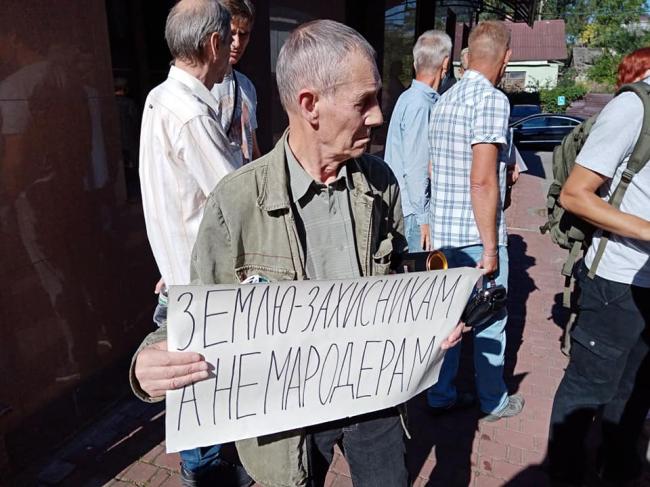 ЗЕМЛЮ-ЗАХИСНИКАМ
А НЕ МАРОДЕРАМ